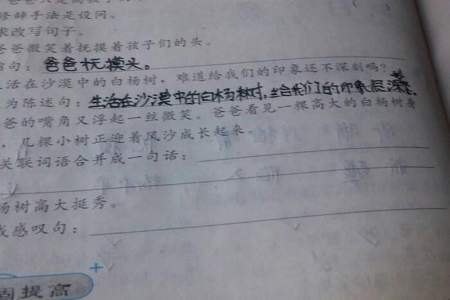 修辞手法是设问。(  )
求改写句子。
爸爸微笑着抚摸着孩子们的头。
句:爸爸抚摸头。
活在沙漠中的白杨树,难道给我们的印象还不深刻吗?
为陈述句:生活在沙漠中的白杨树,给我们的印象很深
爸的嘴角又浮起一丝微笑。爸爸看见一棵高大的白杨树身
,几棵小树正迎着风沙成长起来。
关联词语合并成一句话:
杨树高大挺秀。
成感叹句:
固提高